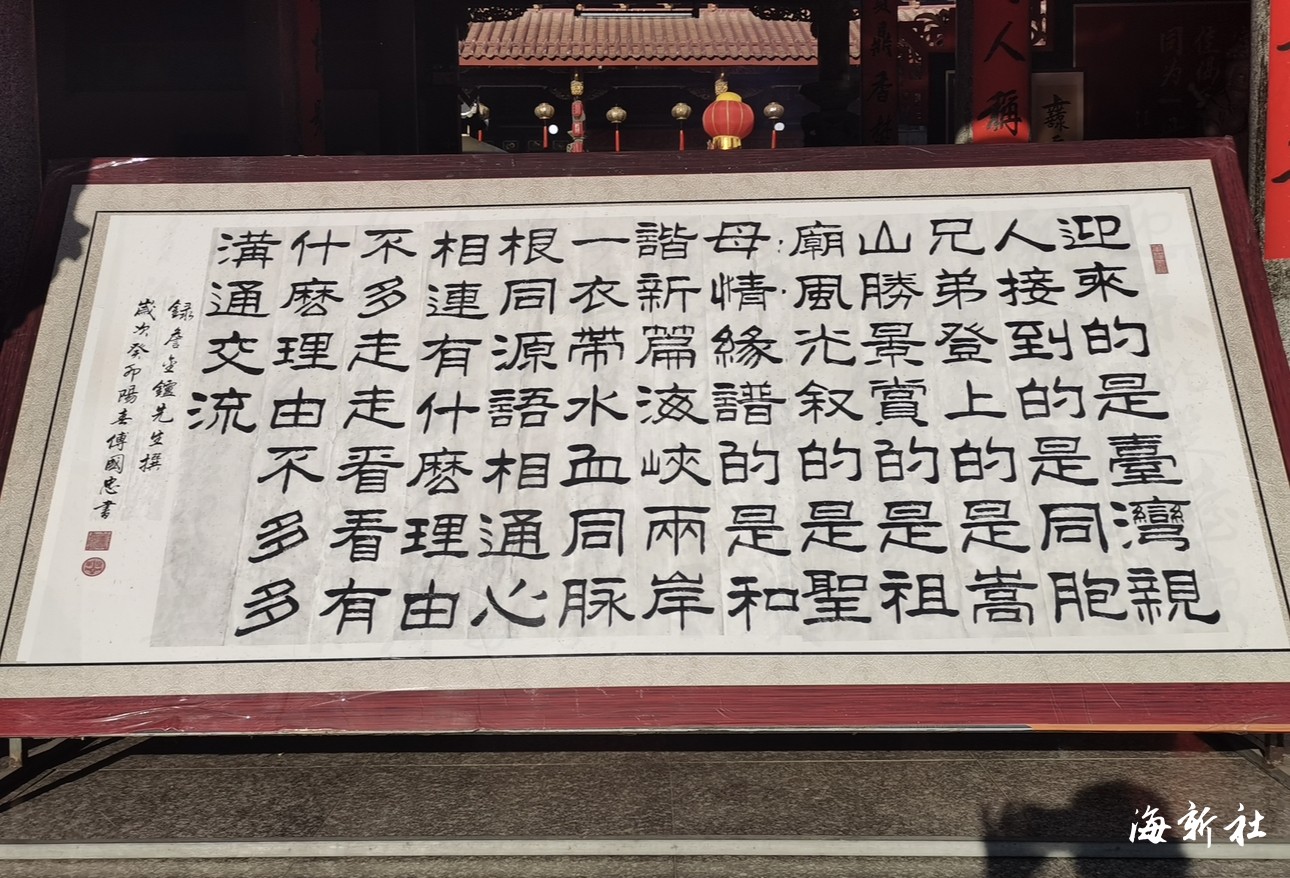 迎來的是臺灣親
人接到的是同胞
兄弟登上的是嵩
山勝景賞的是祖
廟風光叙的是聖
母情緣譜的是和
諧新篇海峽兩岸
一衣帶水血同脉
根同源語相通心
相連有什麽理由
不多走走看看有
什麽理由不多多
溝通交流
録詹金先生撰
歲次癸卯陽春傅國忠書
人稱
鼎香
海新社